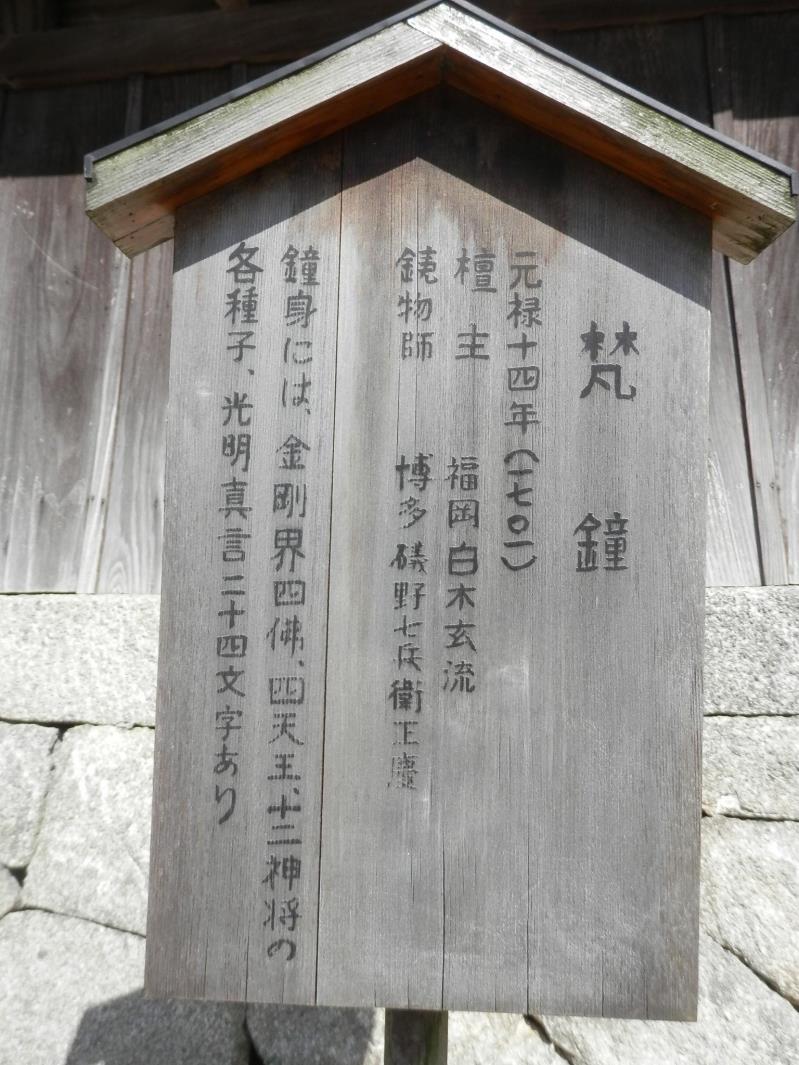 梵鐘
元禄十四年(一七〇一)
檀主 福岡白木玄流
銕物師 博多礒野七兵衛正慶
鐘身には、金剛界四佛、四天王、十二神将の
各種子、光明真言二十四文字あり